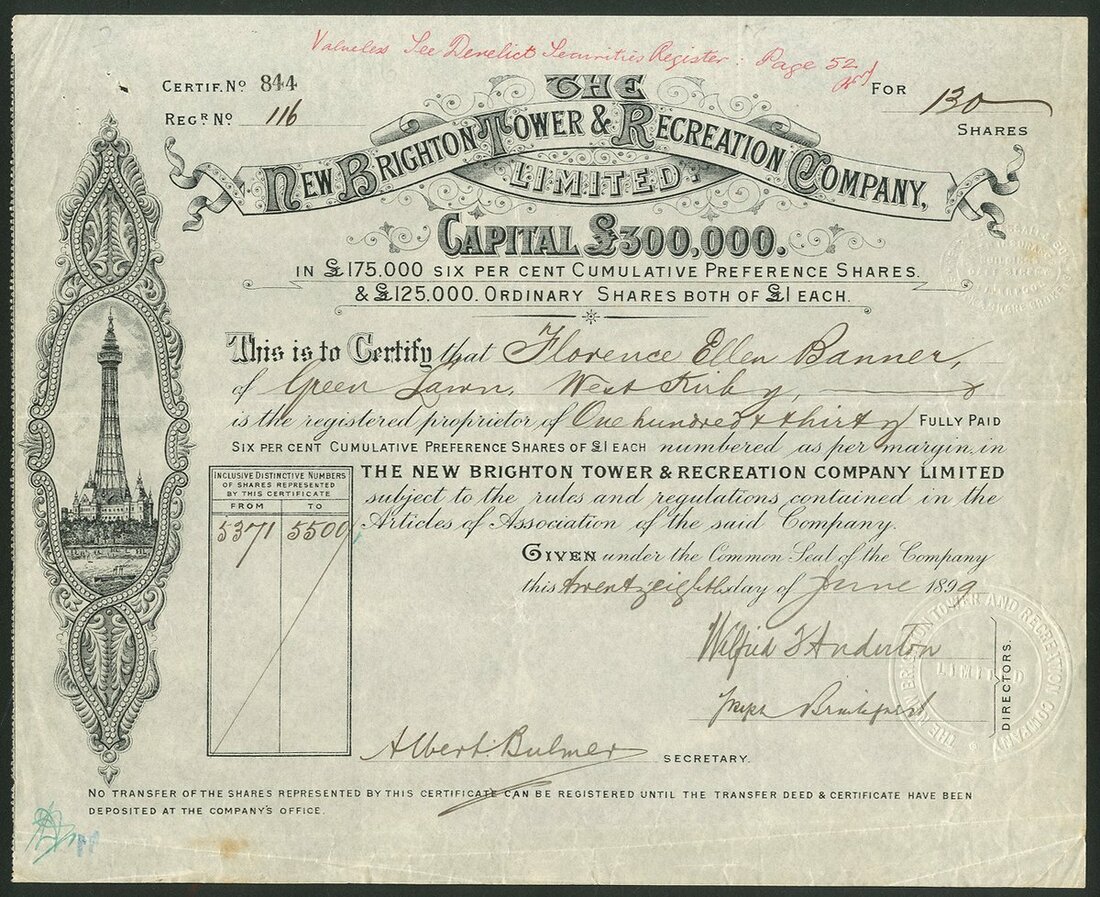 Valueless See Derelict Securities Register: Page 52
CERTIF. No 844
REGR. No 116
FOR 130
SHARES
THE
NEW BRIGHTON TOWER & RECREATION COMPANY,
LIMITED.
CAPITAL £300,000.
IN £175.000 SIX PER CENT CUMULATIVE PREFERENCE SHARES.
& £125.000. ORDINARY SHARES BOTH OF £1 EACH.
This is to Certify that Florence Ellen Banner,
of Green Lawn, West Kirby,
is the registered proprietor of One hundred & thirty FULLY PAID
SIX PER CENT CUMULATIVE PREFERENCE SHARES OF £1 EACH numbered as per margin in
THE NEW BRIGHTON TOWER & RECREATION COMPANY LIMITED
subject to the rules and regulations contained in the
Articles of Association of the said Company.
INCLUSIVE DISTINCTIVE NUMBERS
OF SHARES REPRESENTED
BY THIS CERTIFICATE
FROM TO
5371 5500
GIVEN under the Common Seal of the Company
this twenty eighth day of June 1899
Wilfrid F Anderton
Joseph
DIRECTORS.
THE NEW BRIGHTON TOWER AND RECREATION COMPANY
LIMITED
Albert Bulmer SECRETARY.
NO TRANSFER OF THE SHARES REPRESENTED BY THIS CERTIFICATE CAN BE REGISTERED UNTIL THE TRANSFER DEED & CERTIFICATE HAVE BEEN
DEPOSITED AT THE COMPANY'S OFFICE.